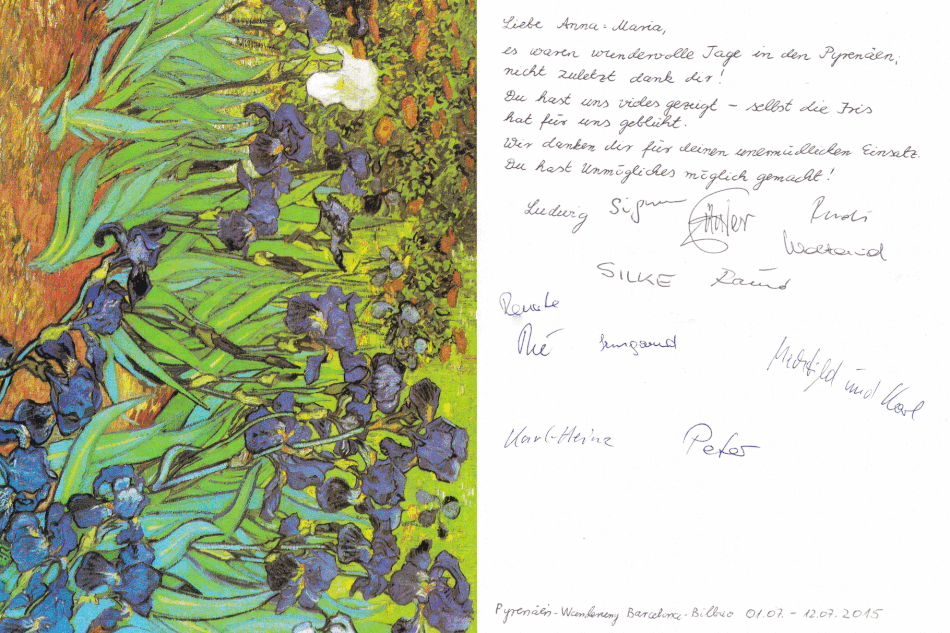 Liebe Anna-Maria,
es waren wundervolle Tage in den Pyrenäen,
nicht zuletzt dank dir!
Du hast uns vieles gezeigt – selbst die Iris
hat für uns geblüht.
Wir danken dir für deinen unermüdlichen Einsatz.
Du hast Unmögliches möglich gemacht!
Ludwig Rudi
Waltraud
SILKE
Renate
Irmgard
Mechtild und Karl
Karl-Heinz Peter
Pyrenäen-Wanderung Barcelona-Bilbao 01.07. – 12.07.2015